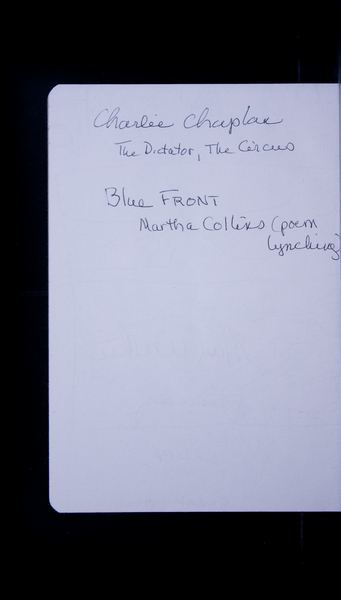 Charlie Chaplan
The Dictator, The Circus
Blue FRONT
Martha Collins (poem
lynching)